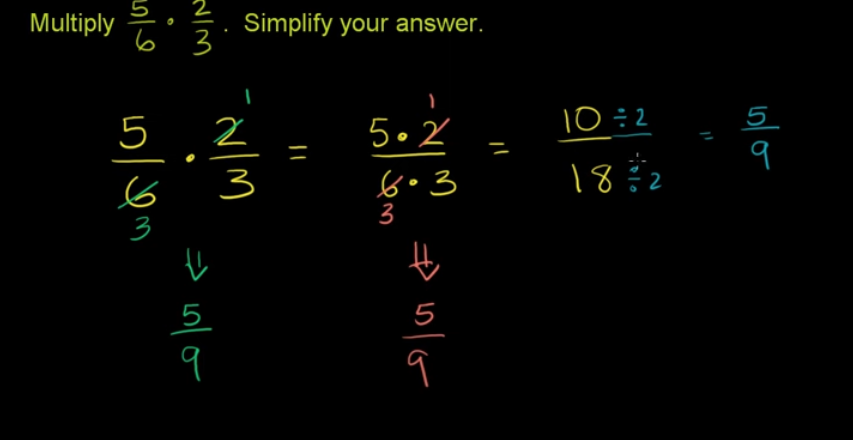 Multiply 5/6 · 2/3. Simplify your answer.
1 1
5/6 · 2/3 = 5·2/6·3 = 10÷2/18÷2 = 5/9
3 3
⇓ ⇓
5/9 5/9